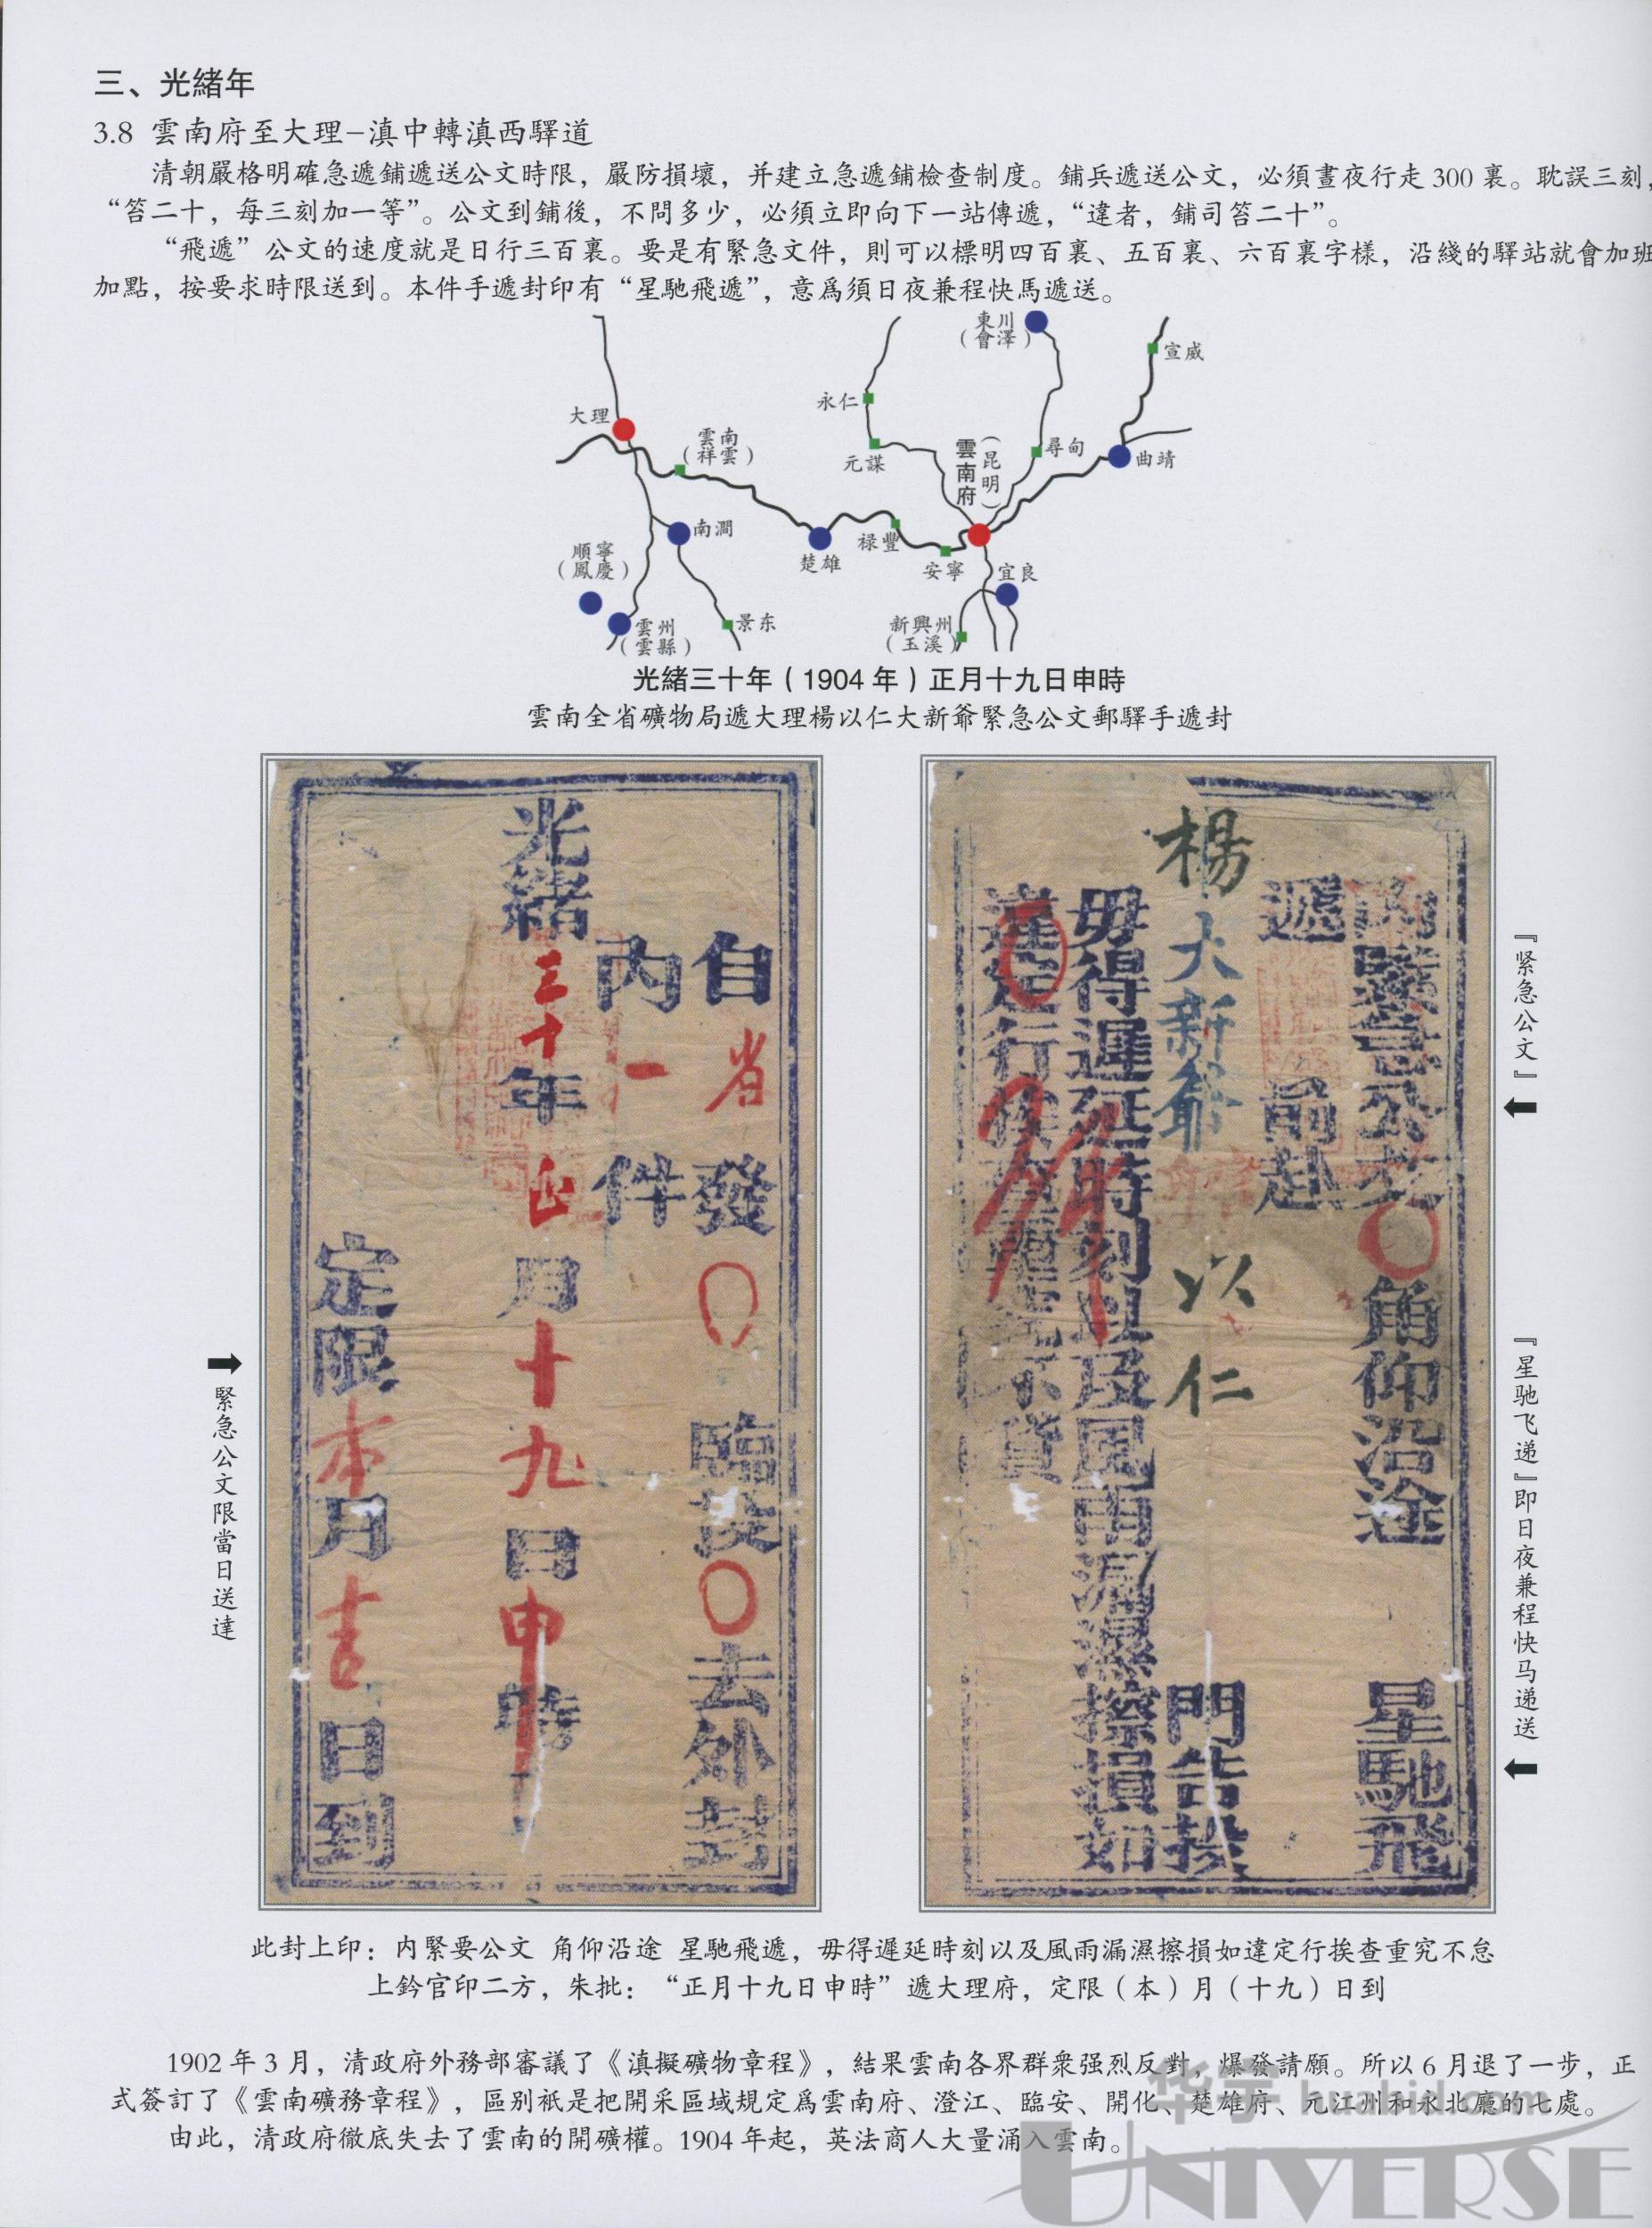 三、光緒年
3.8 雲南府至大理–滇中轉滇西驛道
清朝嚴格明確急遞鋪遞送公文時限，嚴防損壞，并建立急遞鋪檢查制度。鋪兵遞送公文，必須晝夜行走 300 裏。耽誤三刻，
“笞二十，每三刻加一等”。公文到鋪後，不問多少，必須立即向下一站傳遞，“違者，鋪司笞二十”。
“飛遞”公文的速度就是日行三百裏。要是有緊急文件，則可以標明四百裏、五百裏、六百裏字樣，沿綫的驛站就會加班
加點，按要求時限送到。本件手遞封印有“星馳飛遞”，意爲須日夜兼程快馬遞送。
東川
（會澤）
宣威
永仁
大理
雲南
（祥雲）
元謀
雲南府
（昆明）
尋甸
曲靖
南澗
楚雄
禄豐
安寧
宜良
順寧
（鳳慶）
雲州
（雲縣）
景东
新興州
（玉溪）
光緒三十年（1904 年）正月十九日申時
雲南全省礦物局遞大理楊以仁大新爺緊急公文郵驛手遞封
自省發〇 臨發〇去外封
内一件
光緒三十年正月十九日申時
定限本月 日到
➡緊急公文限當日送達
内緊要公文〇角仰沿途 星馳飛
遞 前赴
楊大新爺 以仁 門告投
毋得遲延時刻以及風雨漏濕擦損如
違定行挨查重究不貸
『紧急公文』⬅
『星驰飞递』即日夜兼程快马递送⬅
此封上印：内緊要公文 角仰沿途 星馳飛遞，毋得遲延時刻以及風雨漏濕擦損如違定行挨查重究不怠
上鈐官印二方，朱批：“正月十九日申時”遞大理府，定限（本）月（十九）日到
1902 年 3 月，清政府外務部審議了《滇擬礦物章程》，結果雲南各界群衆强烈反對，爆發請願。所以 6 月退了一步，正
式簽訂了《雲南礦務章程》，區别衹是把開采區域規定爲雲南府、澄江、臨安、開化、楚雄府、元江州和永北廳的七處。
由此，清政府徹底失去了雲南的開礦權。1904 年起，英法商人大量涌入雲南。
华宇 huabid.com
UNIVERSE